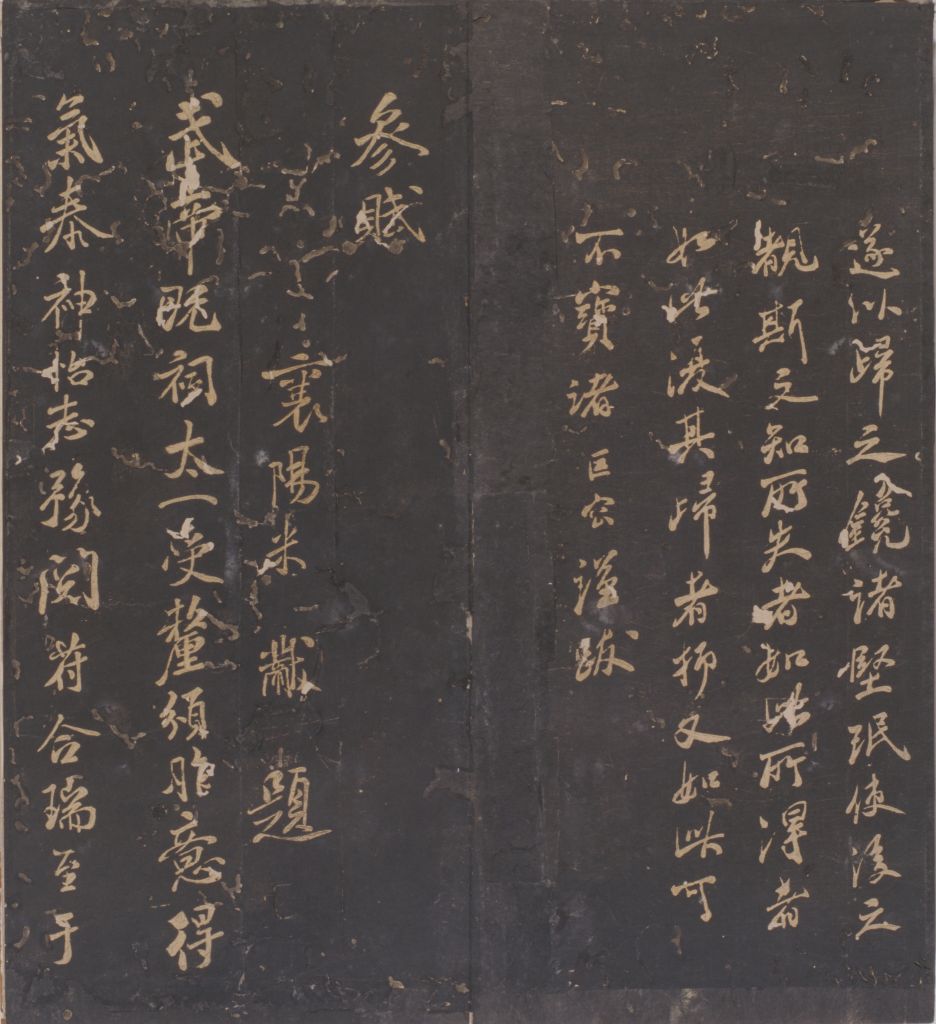 遂以歸之鐫諸堅珉使後之
覩斯文知所失者如此所得者
如此湲其歸者抑又如此可
不寶諸匡公謹跋
參賦
襄陽米黻題
武帝既祠太一受釐頒胙意得
氣泰神怡志豫閱符合瑞至于